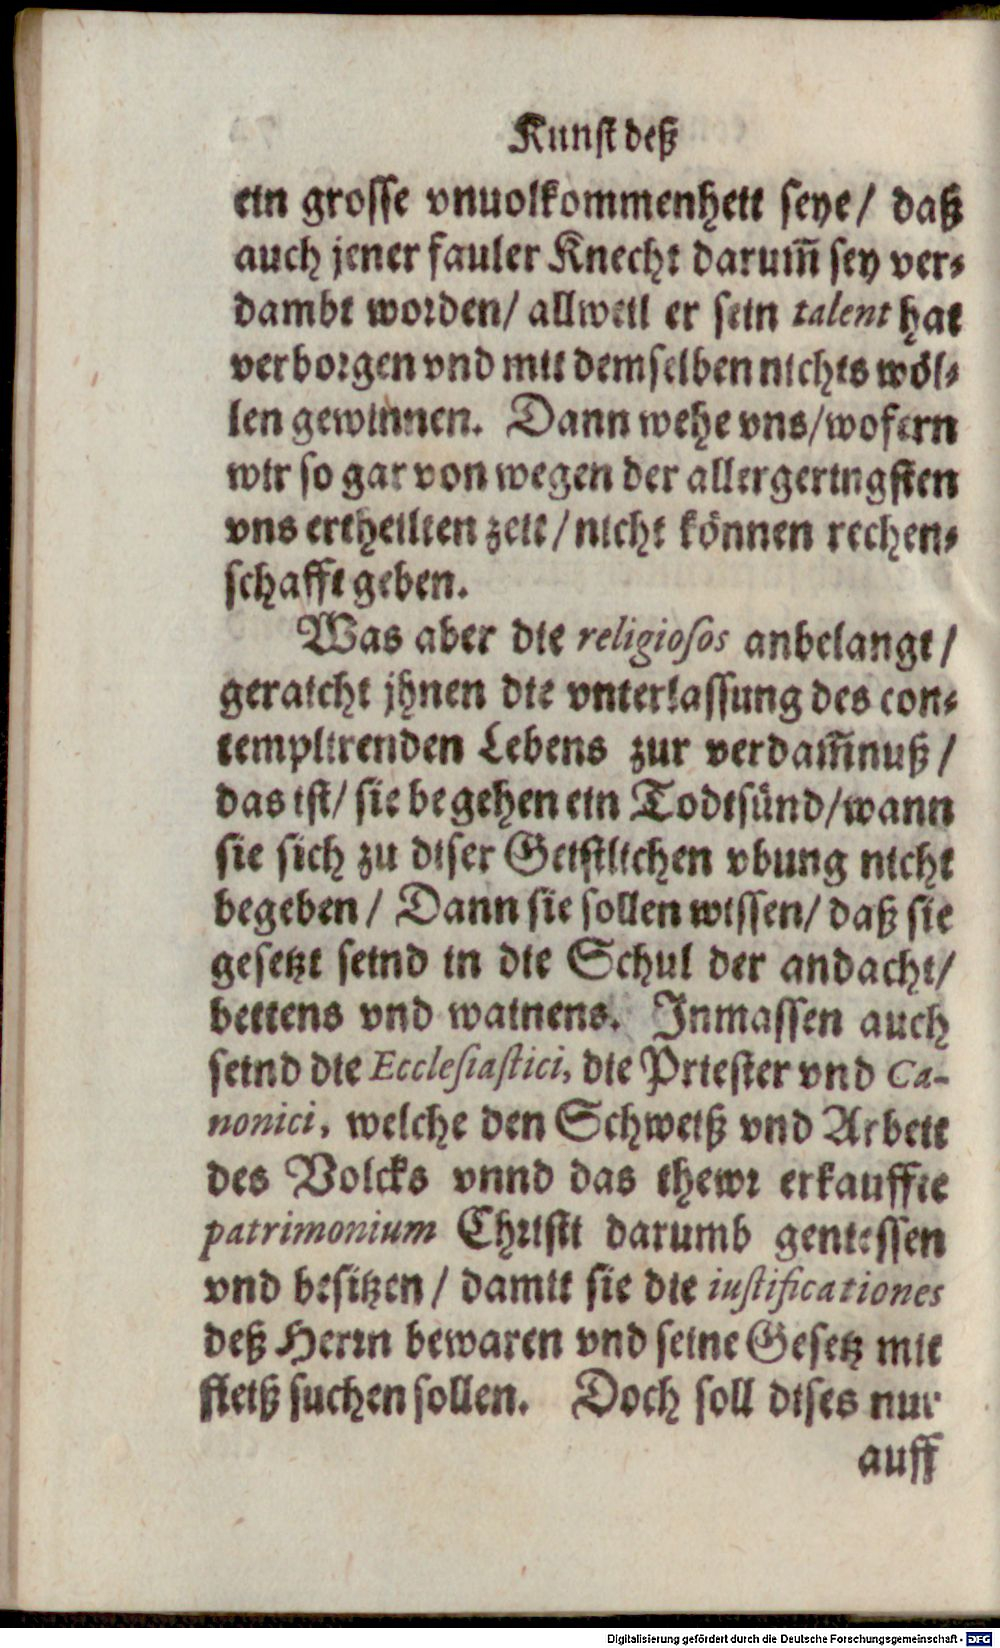 Kunst deß
ein grosse vnuolkommenheit seye/ daß
auch jener fauler Knecht darum̃ sey ver-
dambt worden/ allweil er sein talent hat
verborgen vnd mit demselben nichts wöl-
len gewinnen. Dann wehe vns/wofern
wir so gar von wegen der allergeringsten
vns ertheilten zeit/nicht können rechen-
schafft geben.
Was aber die religiosos anbelangt/
geraicht jhnen die vnterlassung des con-
templirenden Lebens zur verdam̃nuß/
das ist/ sie begehen ein Todtsünd/wann
sie sich zu diser Geistlichen vbung nicht
begeben/ Dann sie sollen wissen/ daß sie
gesetzt seind in die Schul der andacht/
bettens vnd wainens. Inmassen auch
seind die Ecclesiastici, die Priester vnd Ca-
nonici, welche den Schweiß vnd Arbeit
des Volcks vnnd das thewr erkauffte
patrimonium Christi darumb geniessen
vnd besitzen/ damit sie die iustificationes
deß Herrn bewaren vnd seine Gesetz mit
fleiß suchen sollen. Doch soll dises nur
auff
Digitalisierung gefördert durch die Deutsche Forschungsgemeinschaft - DFG